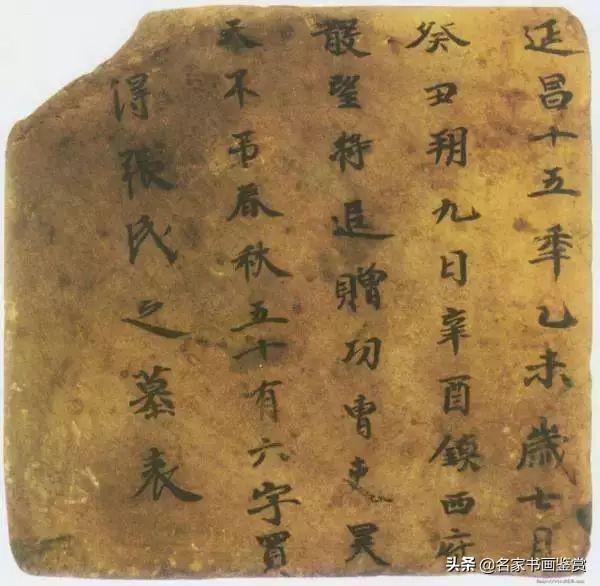 延昌十五秊乙未歲七月
癸丑朔九日辛酉鎮西府
散望将追贈功曹吏昊
天不弔春秋五十有六字買
得張氏之墓表
头条 @名家书画鉴赏